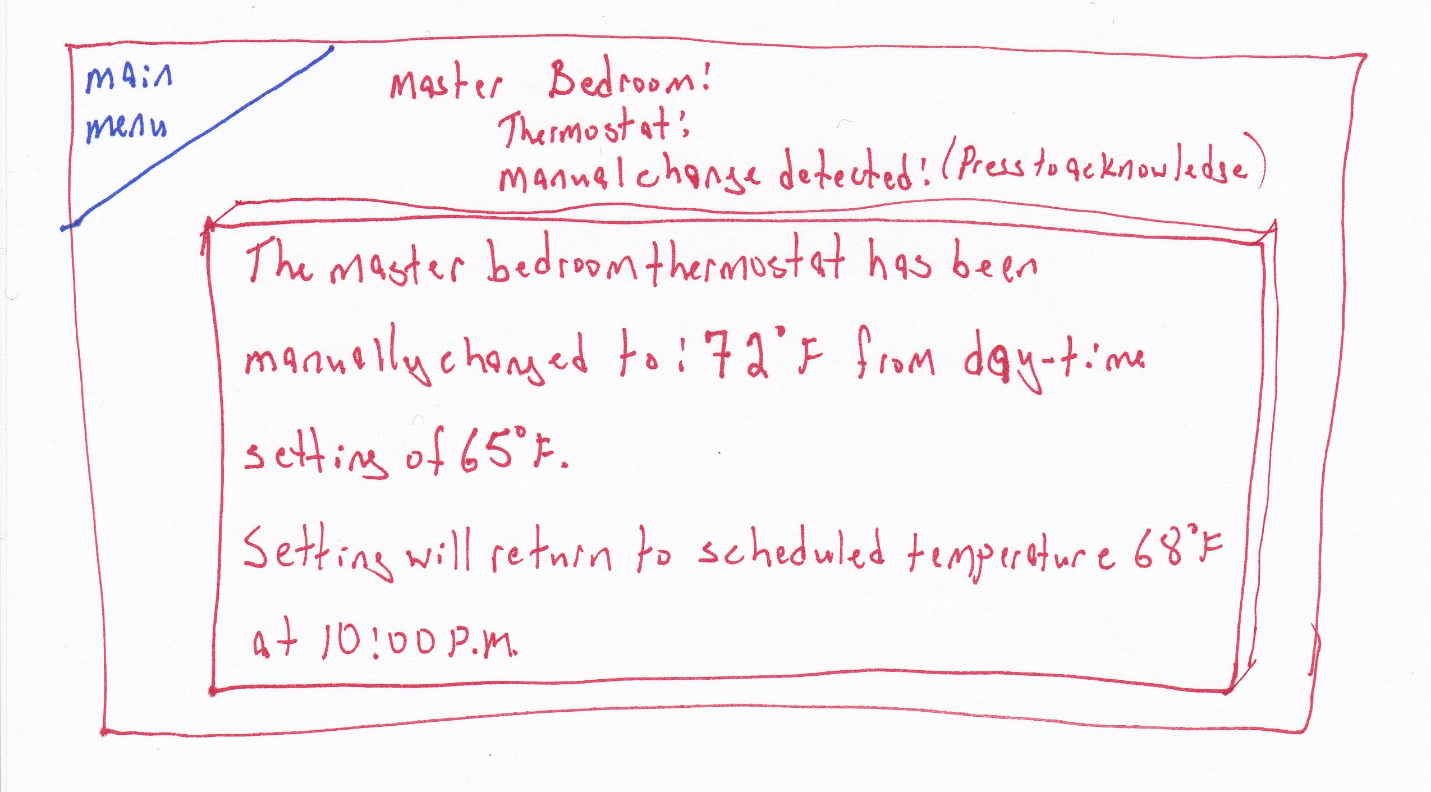 main
menu
Master Bedroom:
Thermostat:
manual change detected! (Press to acknowledge)
The master bedroom thermostat has been
manually changed to: 72°F from day-time
setting of 65°F.
Setting will return to scheduled temperature 68°F
at 10:00 P.M.